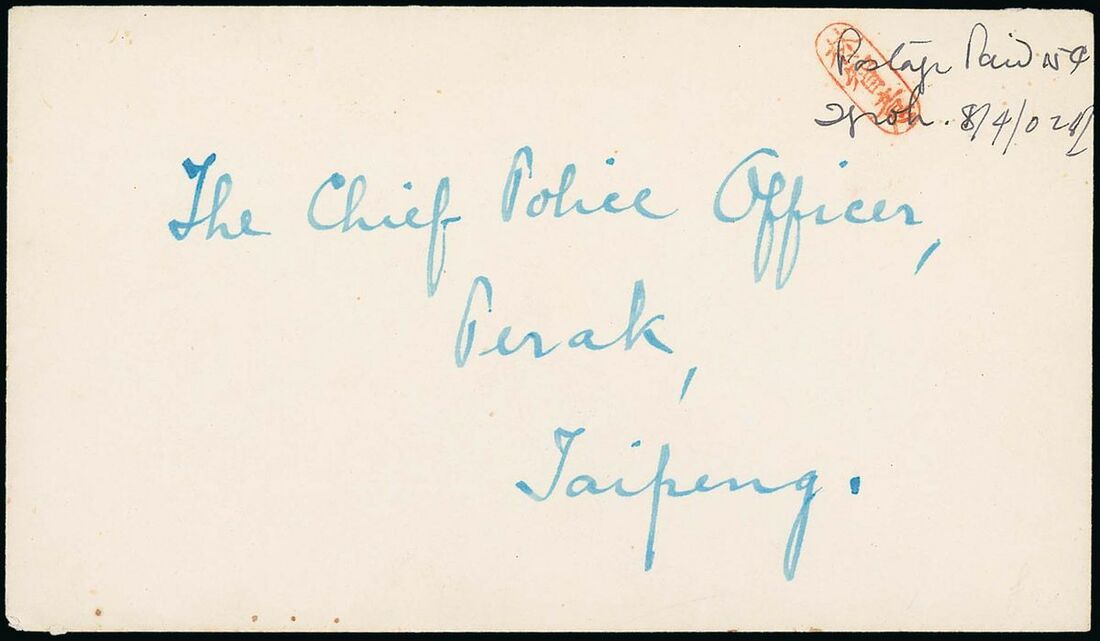 Postage Paid
Ipoh. 8/4/02
The Chief Police Officer,
Perak,
Taipeng.